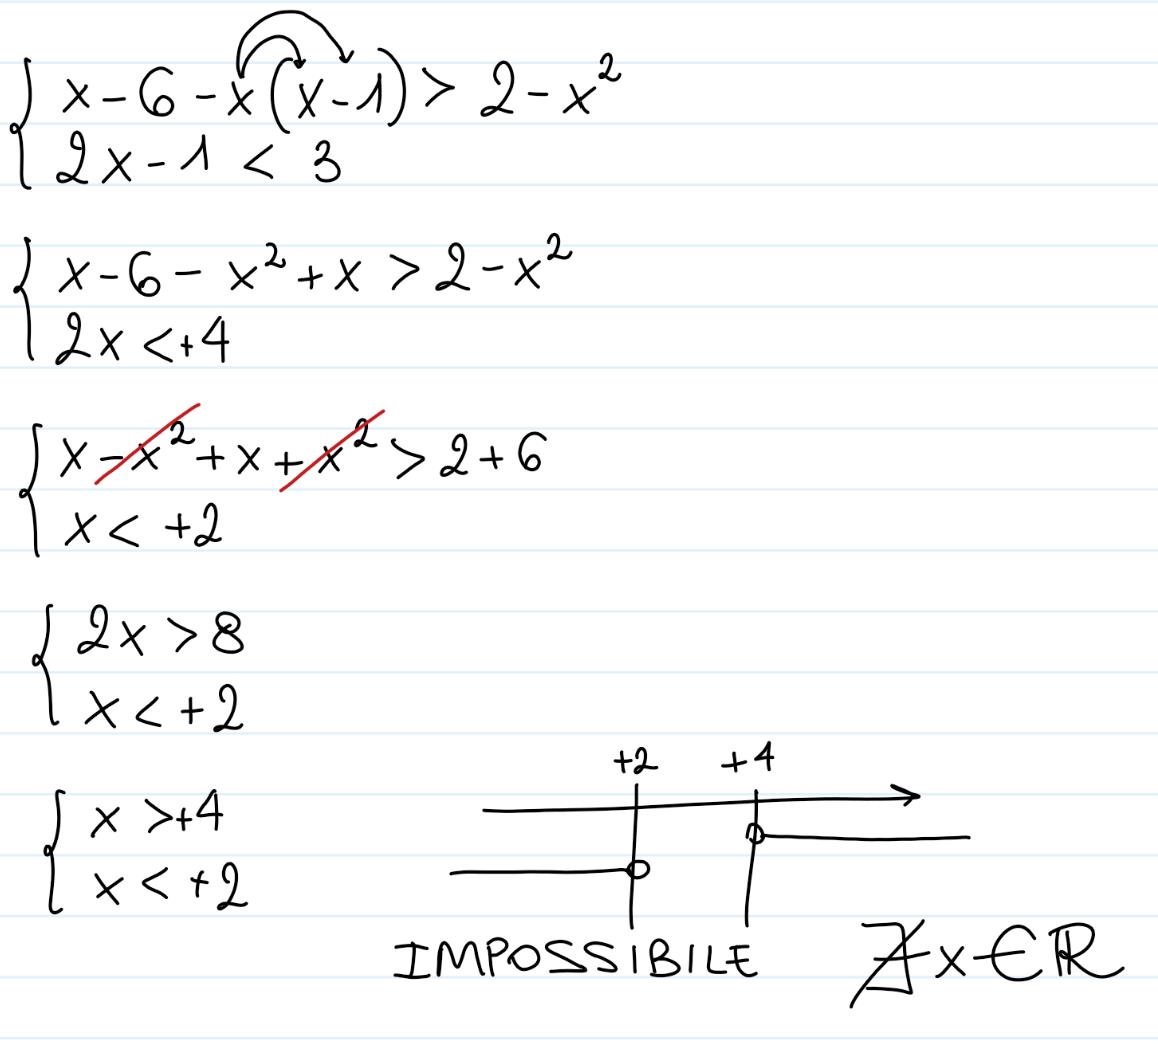 x-6-x(x-1) > 2-x²
2x-1 < 3
x-6-x²+x > 2-x²
2x <+4
x-x²+x+x² > 2+6
x < +2
2x > 8
x < +2
+2 +4
x >+4
x < +2
IMPOSSIBILE ∄x∈ℝ